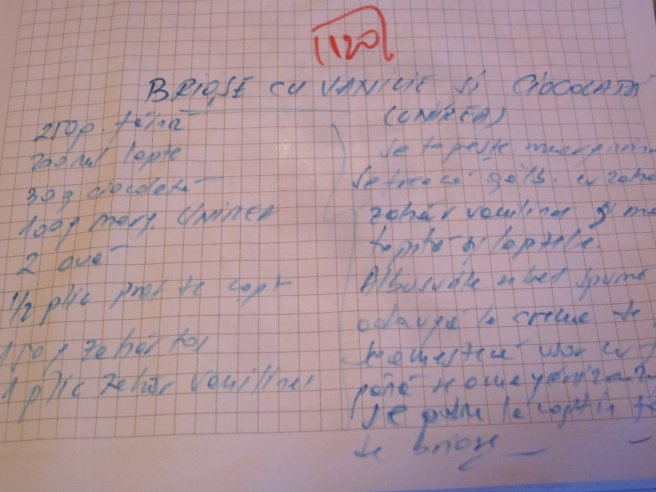 1120
BRIOȘE CU VANILIE ȘI CIOCOLATĂ
(UNIREA)
250g. făină
200ml lapte
30g ciocolată
100g marg. UNIREA
2 ouă
1/2 plic praf de copt
150g zahăr tos
1 plic zahăr vanilinat
Se topește
Se freacă gălb. cu
zahăr vanilinat și
topită și laptele.
Albușurile se bat spumă
adaugă la
amestecă ușor cu
până se omogenizează
Se pun la copt în
de brioșe